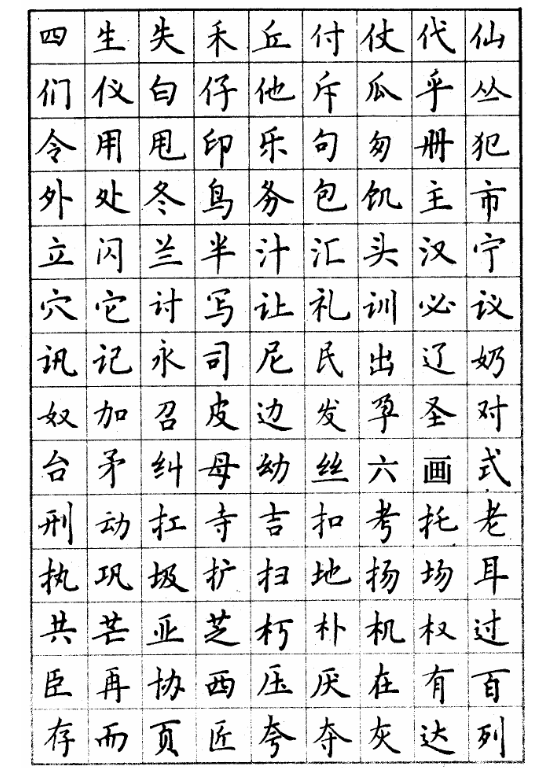 四生失禾丘付仗代仙
们仪白仔他斥瓜乎丛
令用甩印乐句匆册犯
外处冬鸟务包饥主市
立闪兰半汁汇头汉宁
穴它讨写让礼训必议
讯记永司尼民出辽奶
奴加召皮边发孕圣对
台矛纠母幼丝六画式
刑动扛寺吉扣考托老
执巩圾扩扫地扬场耳
共芒亚芝朽朴机权过
臣再协西压厌在有百
存而页匠夸夺灰达列